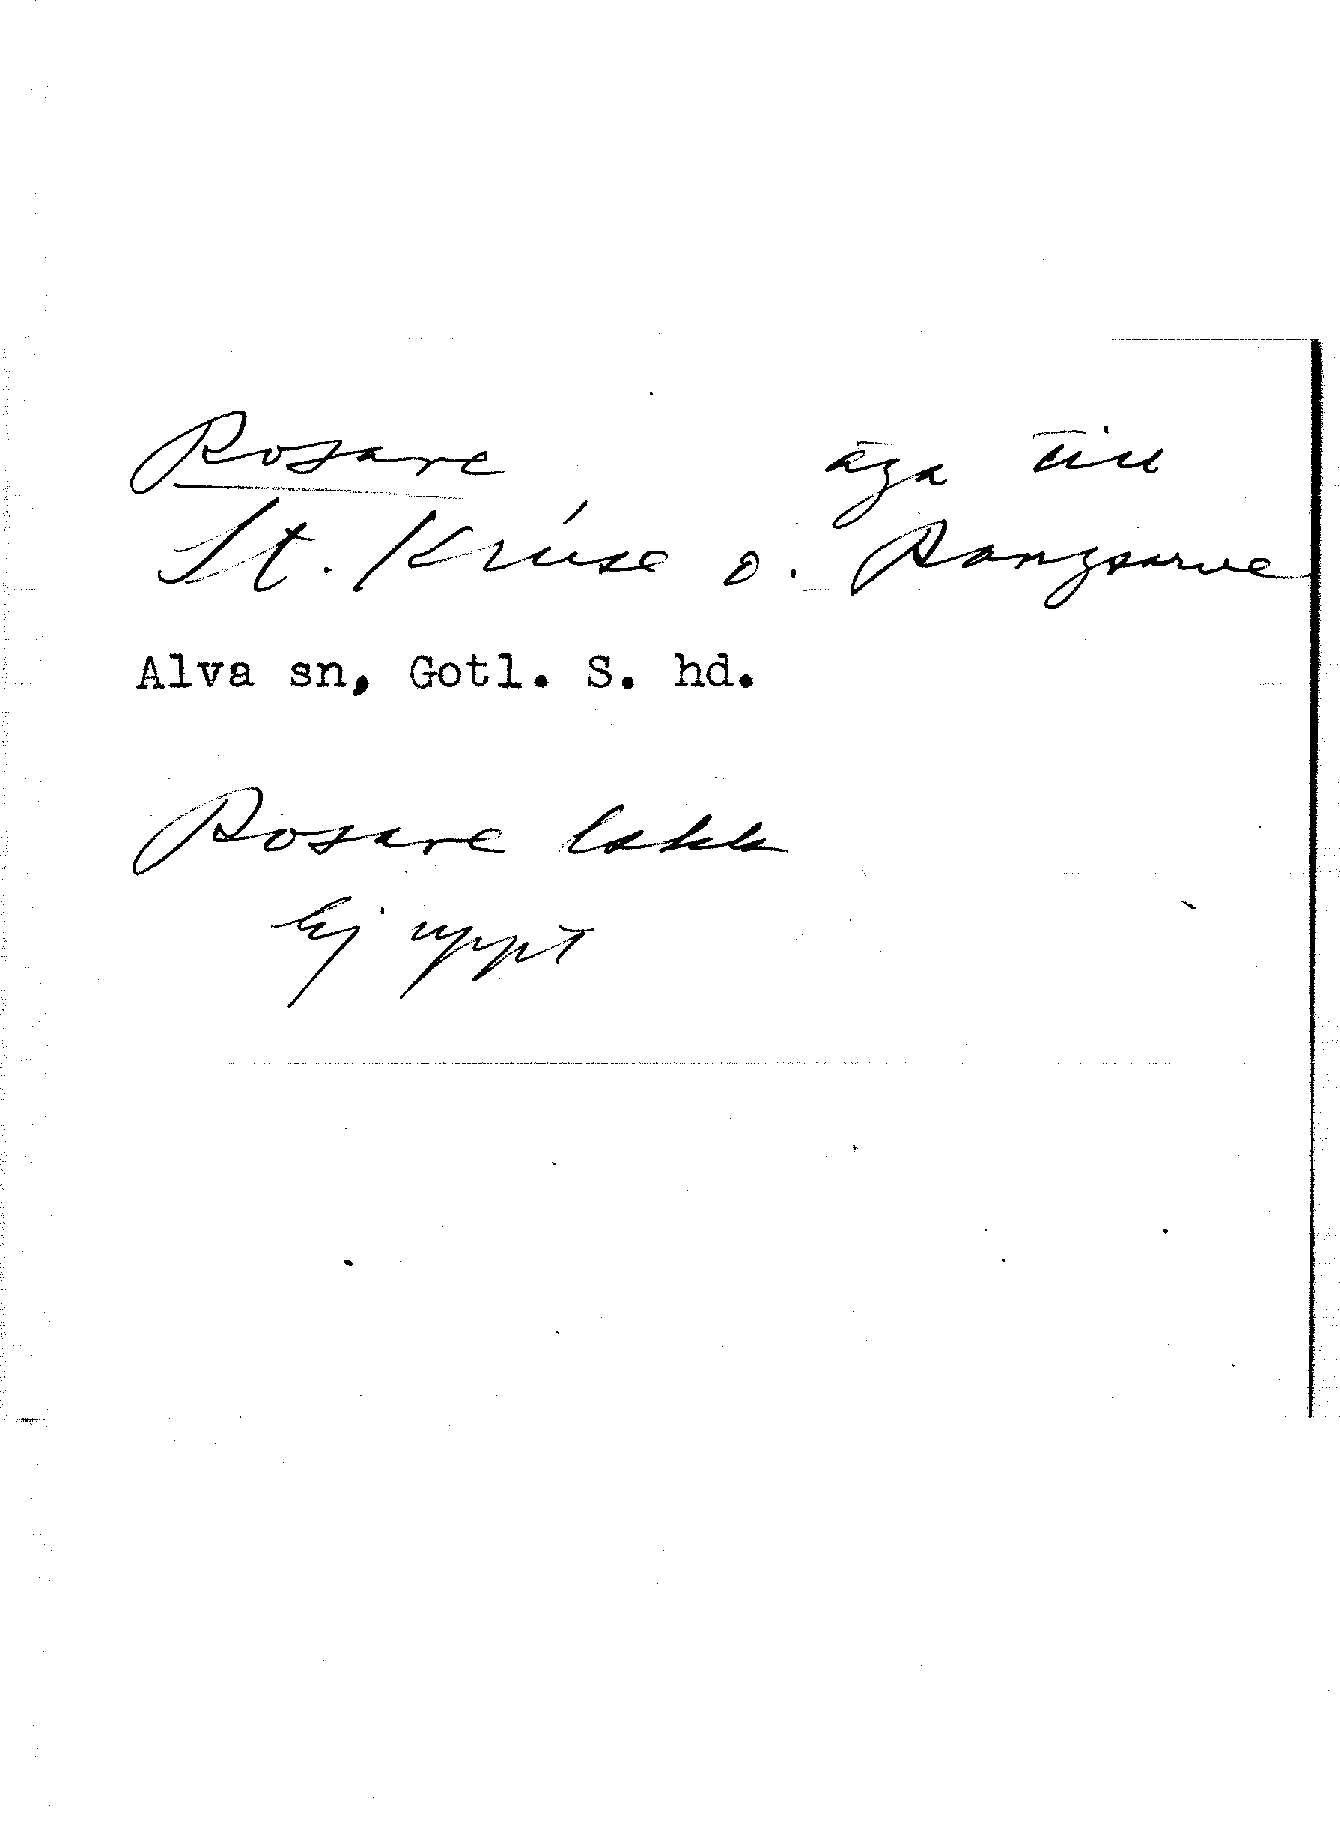 Rosare äga till
St. Kruse o. Rangsarve
Alva sn, Gotl. S. hd.
Rosare lakk
Ej uppt